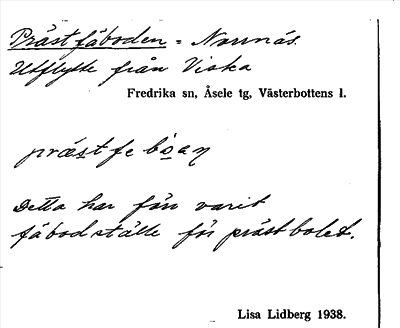 Prästfäboden = Norrnäs.
Utflytte från Viska
Fredrika sn, Åsele tg, Västerbottens l.
præstfebòan
Detta har förr varit
fäbodställe för prästbolet.
Lisa Lidberg 1938.